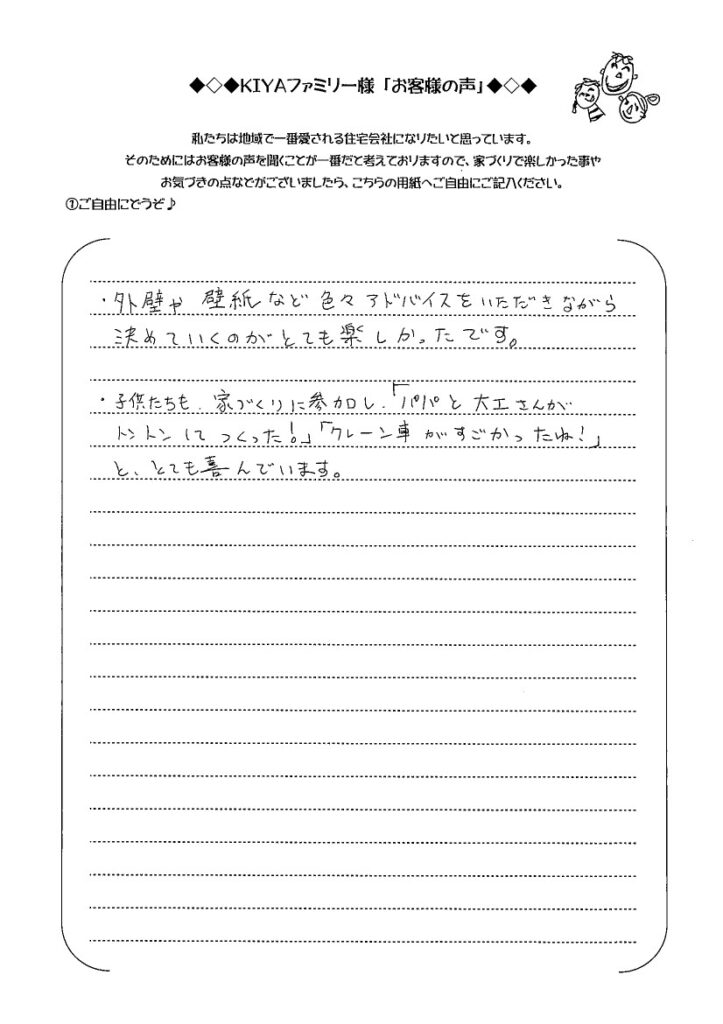 ◆◇◆KIYAファミリー様「お客様の声」◆◇◆
私たちは地域で一番愛される住宅会社になりたいと思っています。
そのためにはお客様の声を聞くことが一番だと考えておりますので、家づくりで楽しかった事や
お気づきの点などがございましたら、こちらの用紙へご自由にご記入ください。
①ご自由にどうぞ♪
・外壁や 壁紙など色々アドバイスをいただきながら
決めていくのがとても楽しかったです。
・子供たちも、家づくりに参加し、「パパと大工さんが
トントンしてつくった!」「クレーン車がすごかったね!」
と、とても喜んでいます。